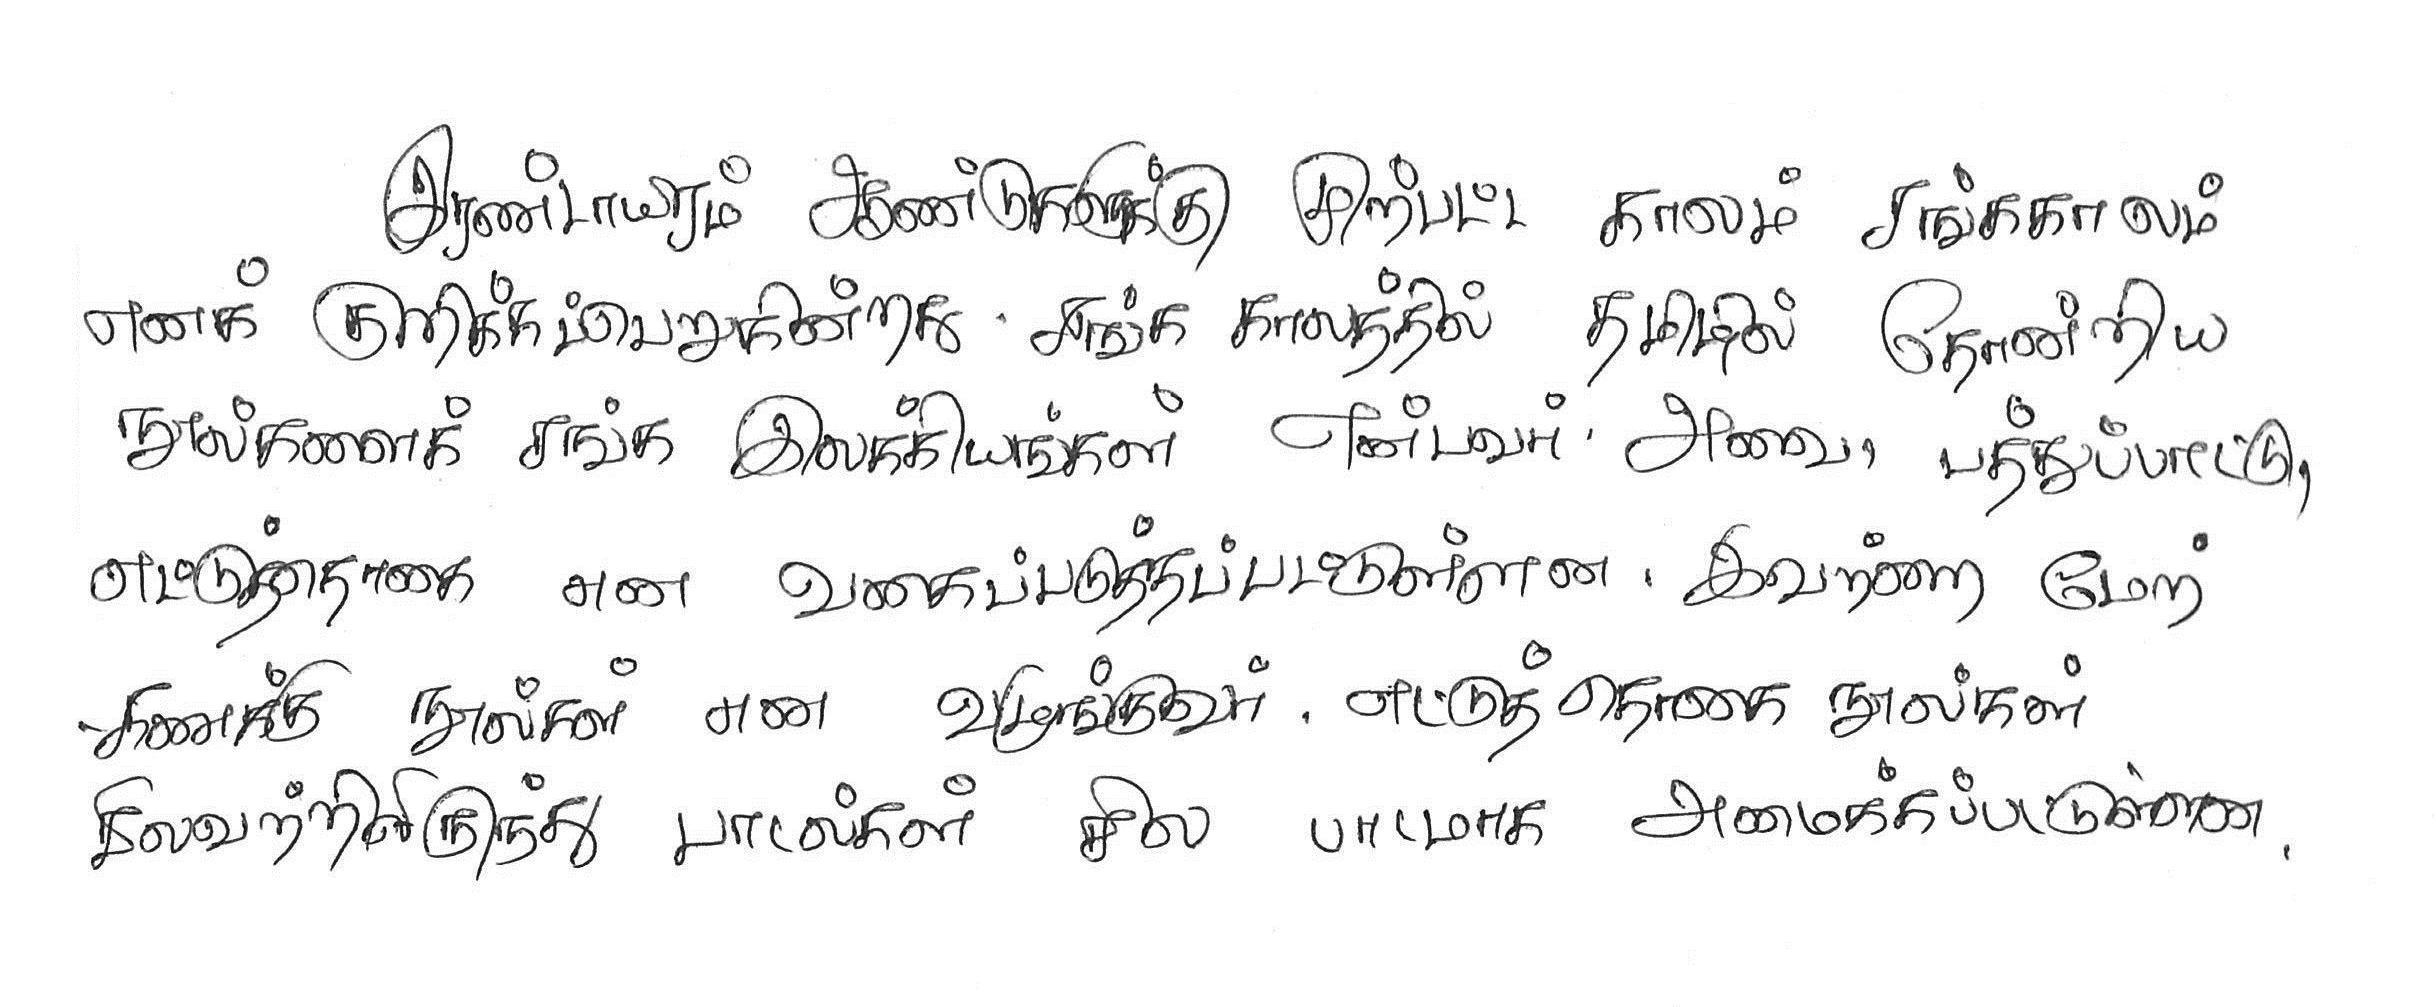 இரண்டாயிரம் ஆண்டுகளுக்கு முற்பட்ட காலம் சங்ககாலம்
எனக் குறிக்கப்பெறுகின்றது. சங்க காலத்தில் தமிழில் தோன்றிய
நூல்களைக் சங்க இலக்கியங்கள் என்பவர். அவை, பத்துப்பாட்டு,
எட்டுத்தொகை என வகைப்படுத்தப்பட்டுள்ளன. இவற்றை மேற்
கணக்கு நூல்கள் என வழங்குவர். எட்டுத் தொகை நூல்கள்
சிலவற்றிலிருந்து பாடல்கள் சில பாடமாக அமைக்கப்பட்டுள்ளன.